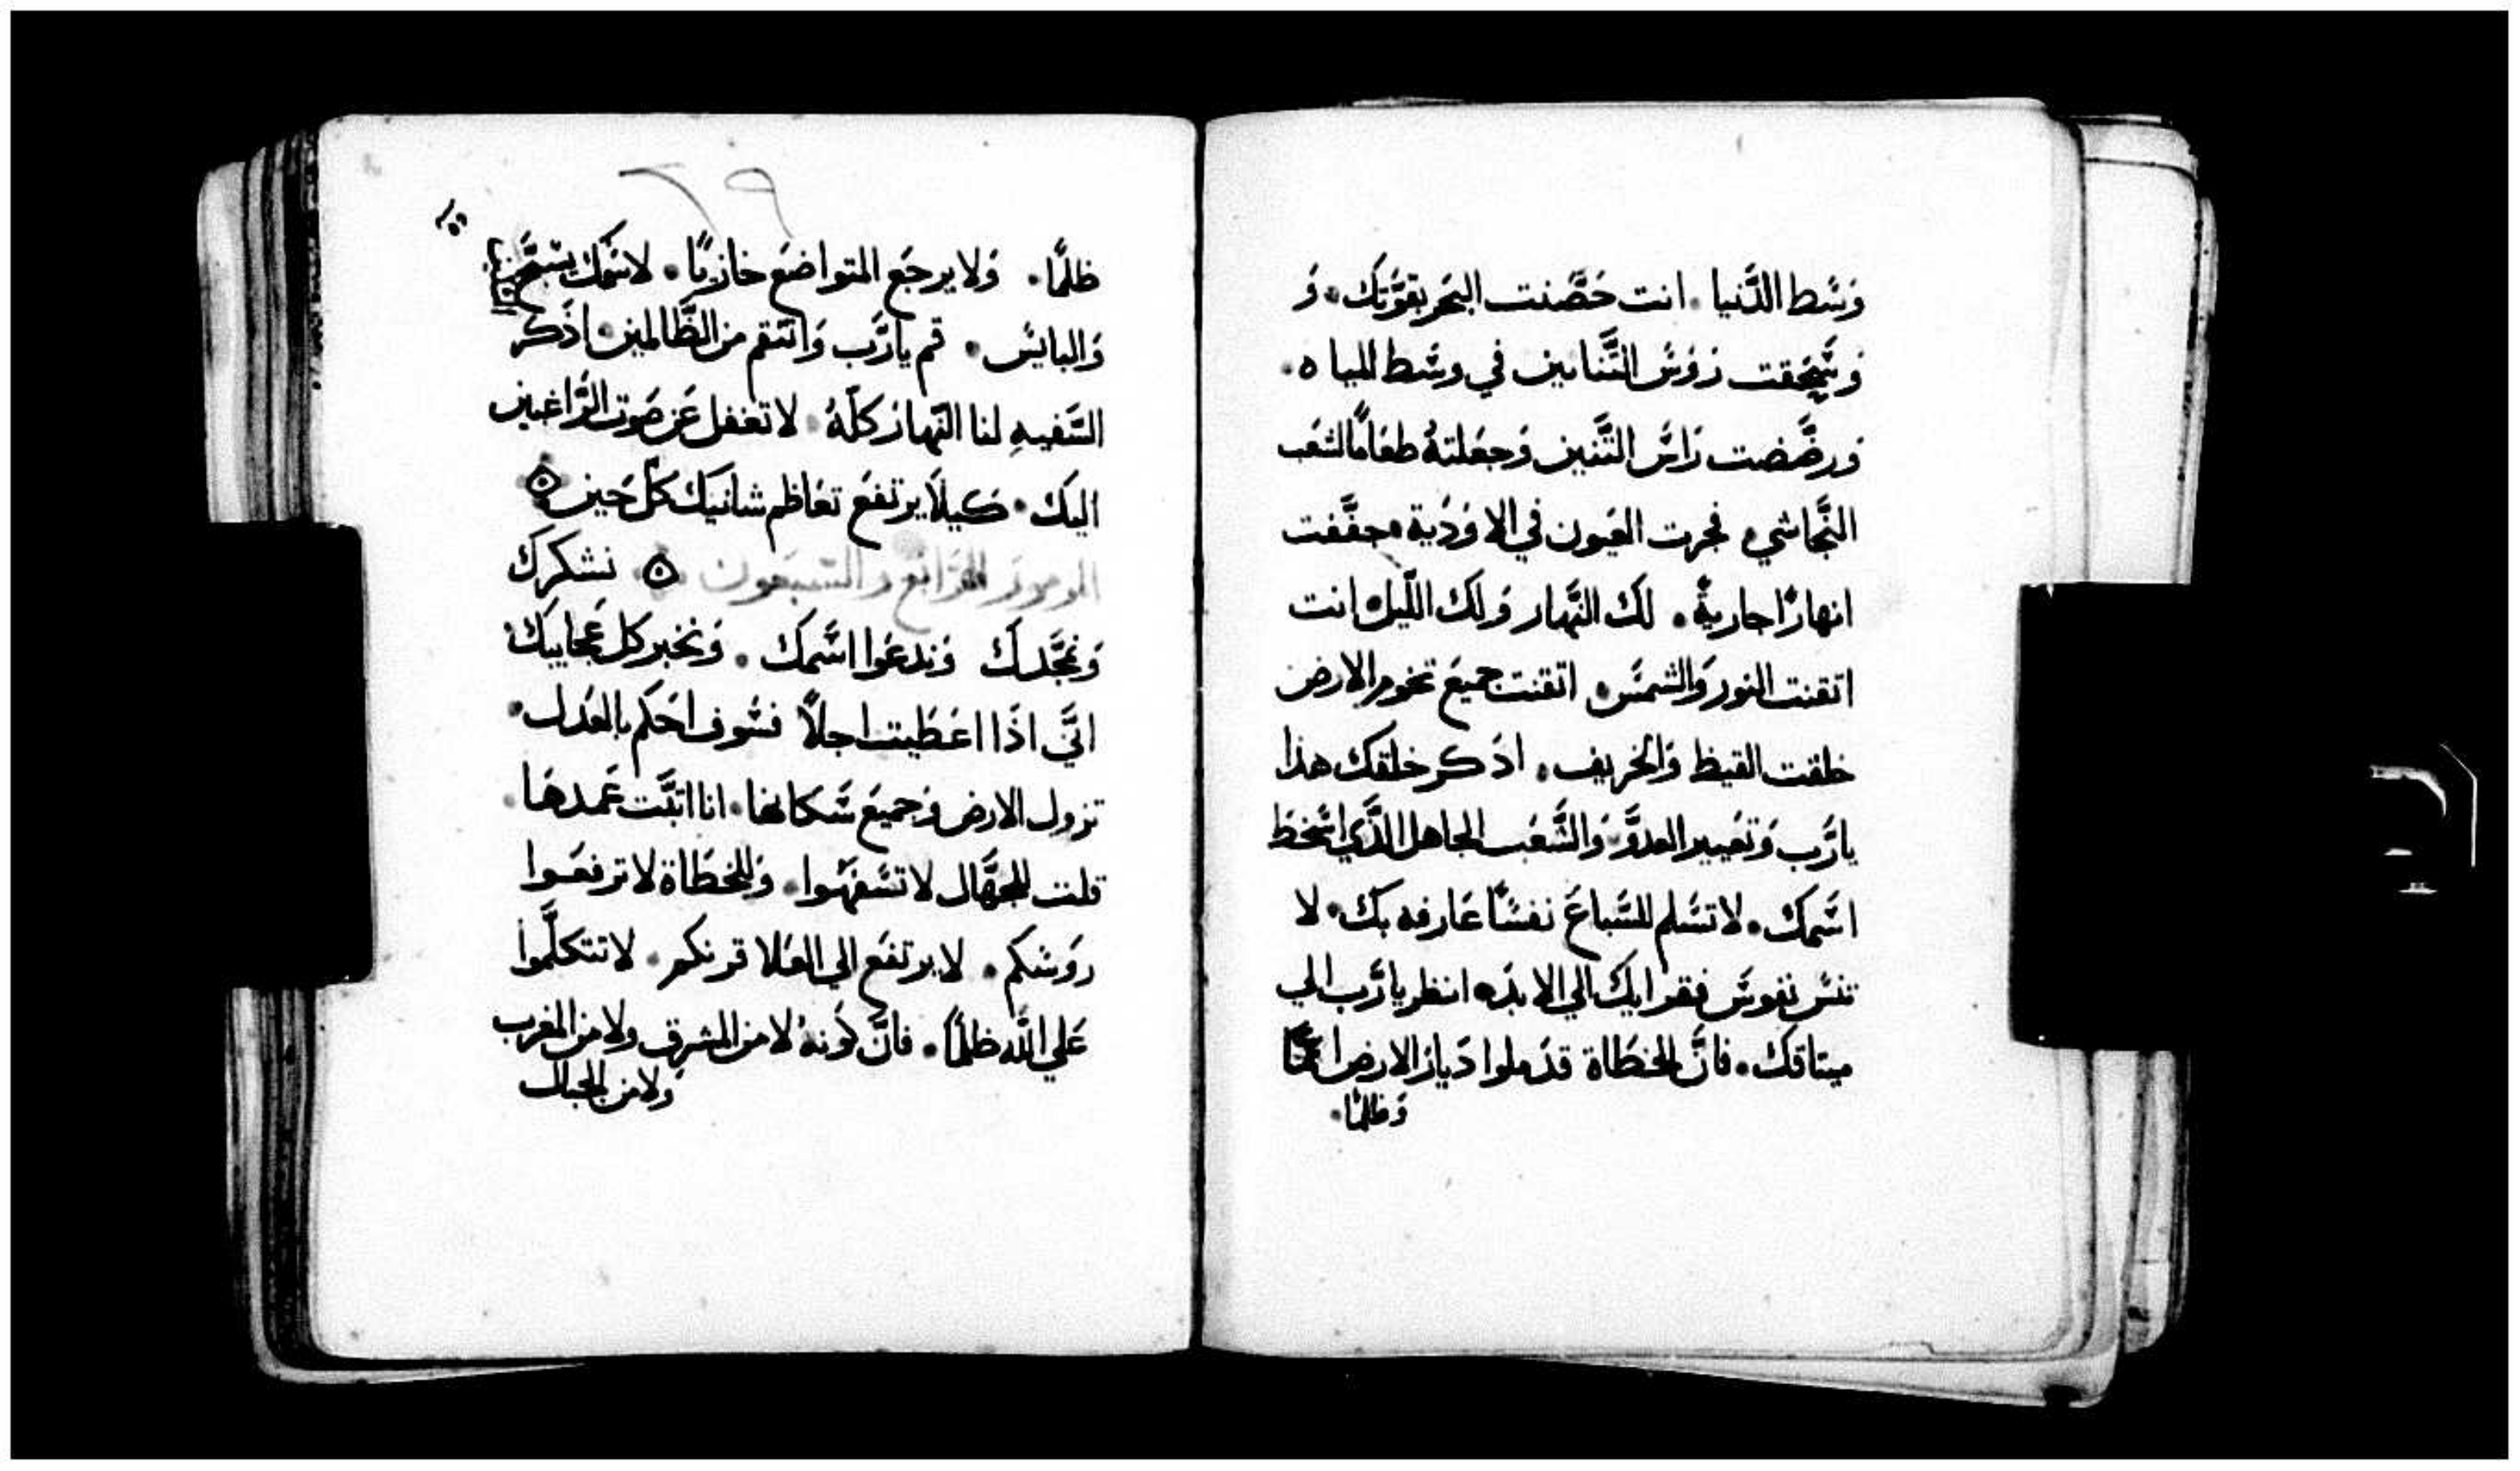 وَسَط الدَّنيا . انت حَصَّنت البحَر بقوَّتك . وَ
وَسَحَقت رَوسَ التَّنانين في وسَط المياه .
ورضَّضت رَاسَ التَّنين وَجعَلتهُ طعَامًا لشعَب
النَّجاشي . فجرت العَيون في الاوَدية . جفَّفت
انهارًا جارية . لكَ النَّهار وَلك اللَّيل . انت
اتقنت النور وَالشمسَ . اتقنت جميعَ تخوم الارض
خلقت القيظ وَالخريف . اذكر خلقتك هذا
يارَّب وَتعَيير العدوَّ وَالشَّعَب الجاهل الذَّي اسَخط
اسَمك . لا تسَلم للسَّباعَ نفسًا عَارفه بك . لا
تنسَ نفوسَ فقرايك الي الابد . انظر يارَّب الي
ميتاقك . فانَّ الخطَاة قدَ ملوا دَيارَ الارض اتمًا
وَظلمًا .
٢٩
ظلمًا . وَلا يرجعَ المتواضعَ خازيًا . لاسَمك يسَبَّح
وَالبايسَ . قم يارَّب وَانتقم من الظَّالمين . اذَكر
السَّفيهِ لنا النَّهارَ كلَّهُ . لا تغفل عَن صَوت الرَّاغبين
اليك . كيلاَ يرتفعَ تعَاظم شانيك كلَّ حَين
المزمورَ الرَّابعَ والسَّبعَون نشكرك
وَنمجَّدكَ وَندعَوا اسَّمك . وَنخبر كل عَجايبك
انيَّ اذَا اعَطَيت اجلاً فسَوف احَكم بالعَدل .
تزول الارض وَجميعَ سَكانها . انا اتبَّت عَمدهَا .
قلت للجهَّال لا تسَفهَوا . وَللخطَاة لا ترفعَوا
روَسكم . لا يرتفعَ الي العَلا قرنكم . لا تتكلَّموا
عَلي اللَّه ظلمًا . فانَّ دَونهُ لا من المشرق ولا من المغرب
ولا من الجبال